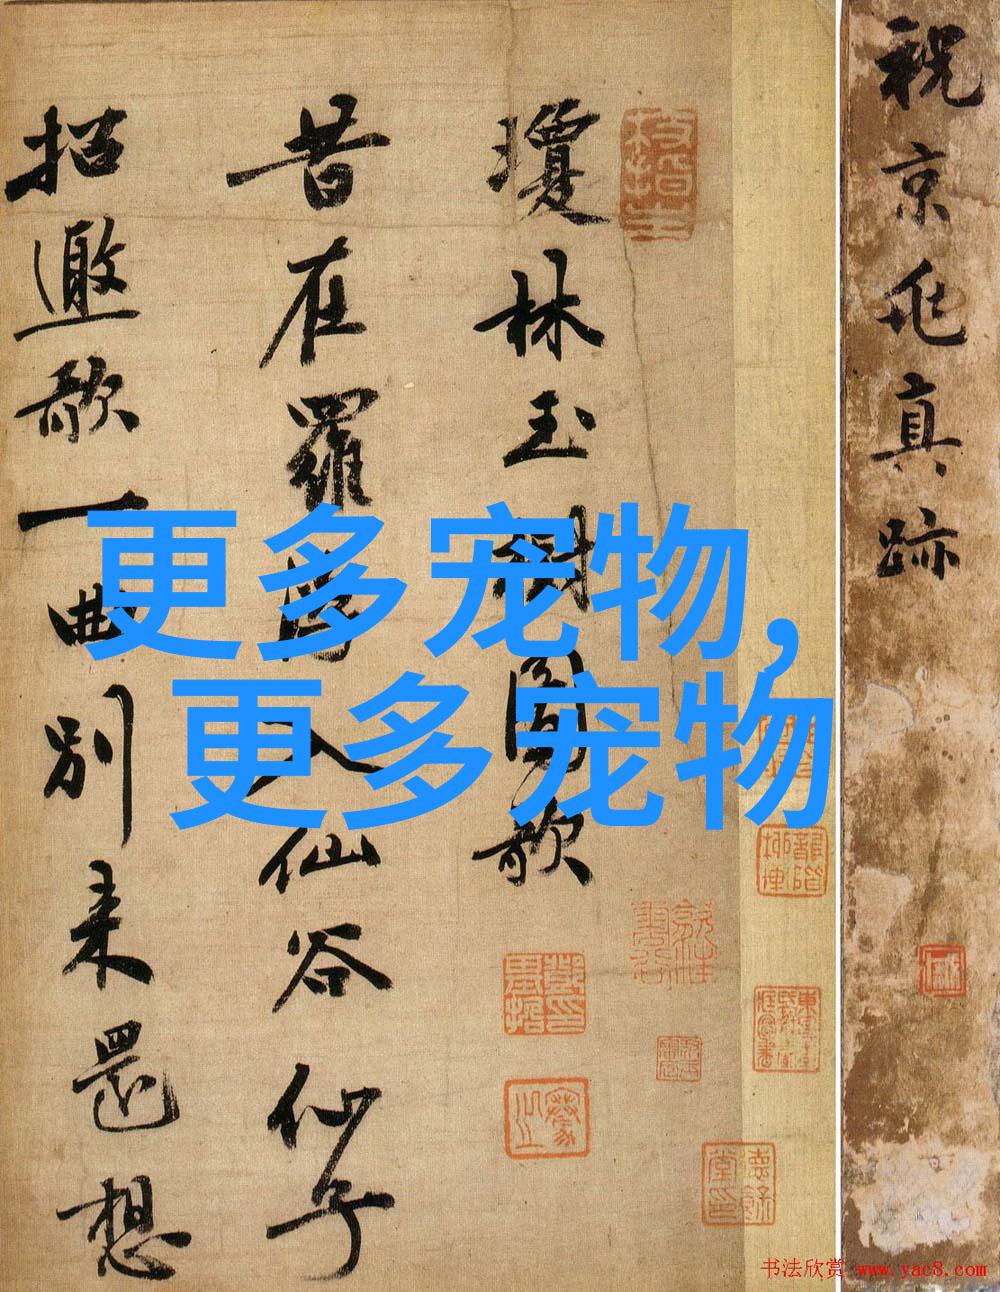 祝京兆真跡
瓊林玉樹閣歌
昔在羅浮入仙谷仙子
招邀歌一曲別来還想
更多宠物,
更多宠物
书法欣赏 www.yac8.com